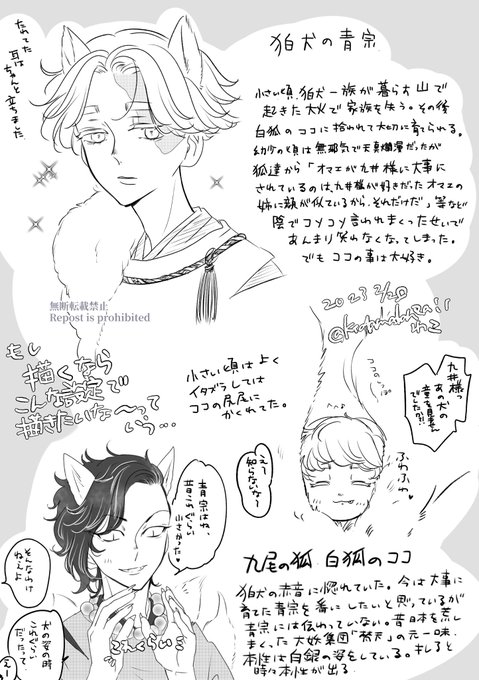 狛犬の青宗
たれてた
耳は
ちゃんと立ちました
小さい頃、狛犬一族が暮らす山で
起きた大火で家族を失う。その後
白狐のココに拾われて大切に育てられる。
幼少の頃は無邪気で天真爛漫だったが
狐達から「オマエが九井様に大事に
されているのは、九井様が好きだったオマエの
姉に顔が似ているから、それだけだ」等など
陰でコソコソ言われまくったせいで
あんまり笑わなくなってしまった。
でもココの事は大好き。
無断転載禁止
Repost is prohibited
2023 2/20
もし
描くなら
こんな設定で
描きたいな〜って
いう…
小さい頃はよく
イタズラしては
ココの尻尾に
かくれてた。
九井様っ
あの犬の
童を見ません
でしたか?!
ココのしっぽ
ふわふわ
えー
知らないな〜
青宗はね、
昔これぐらい
小さかった
そんなわけ
ねぇよ
犬の姿の時
これぐらい
だったって
えー
これくらい
九尾の狐 白狐のココ
狛犬の赤音に惚れていた。今は大事に
育てた青宗を番にしたいと思っているが
青宗には伝わっていない。昔日本を荒し
まくった大妖集団「梵天」の元一味。
本性は白銀の姿をしている。キレると
時々本性が出る。